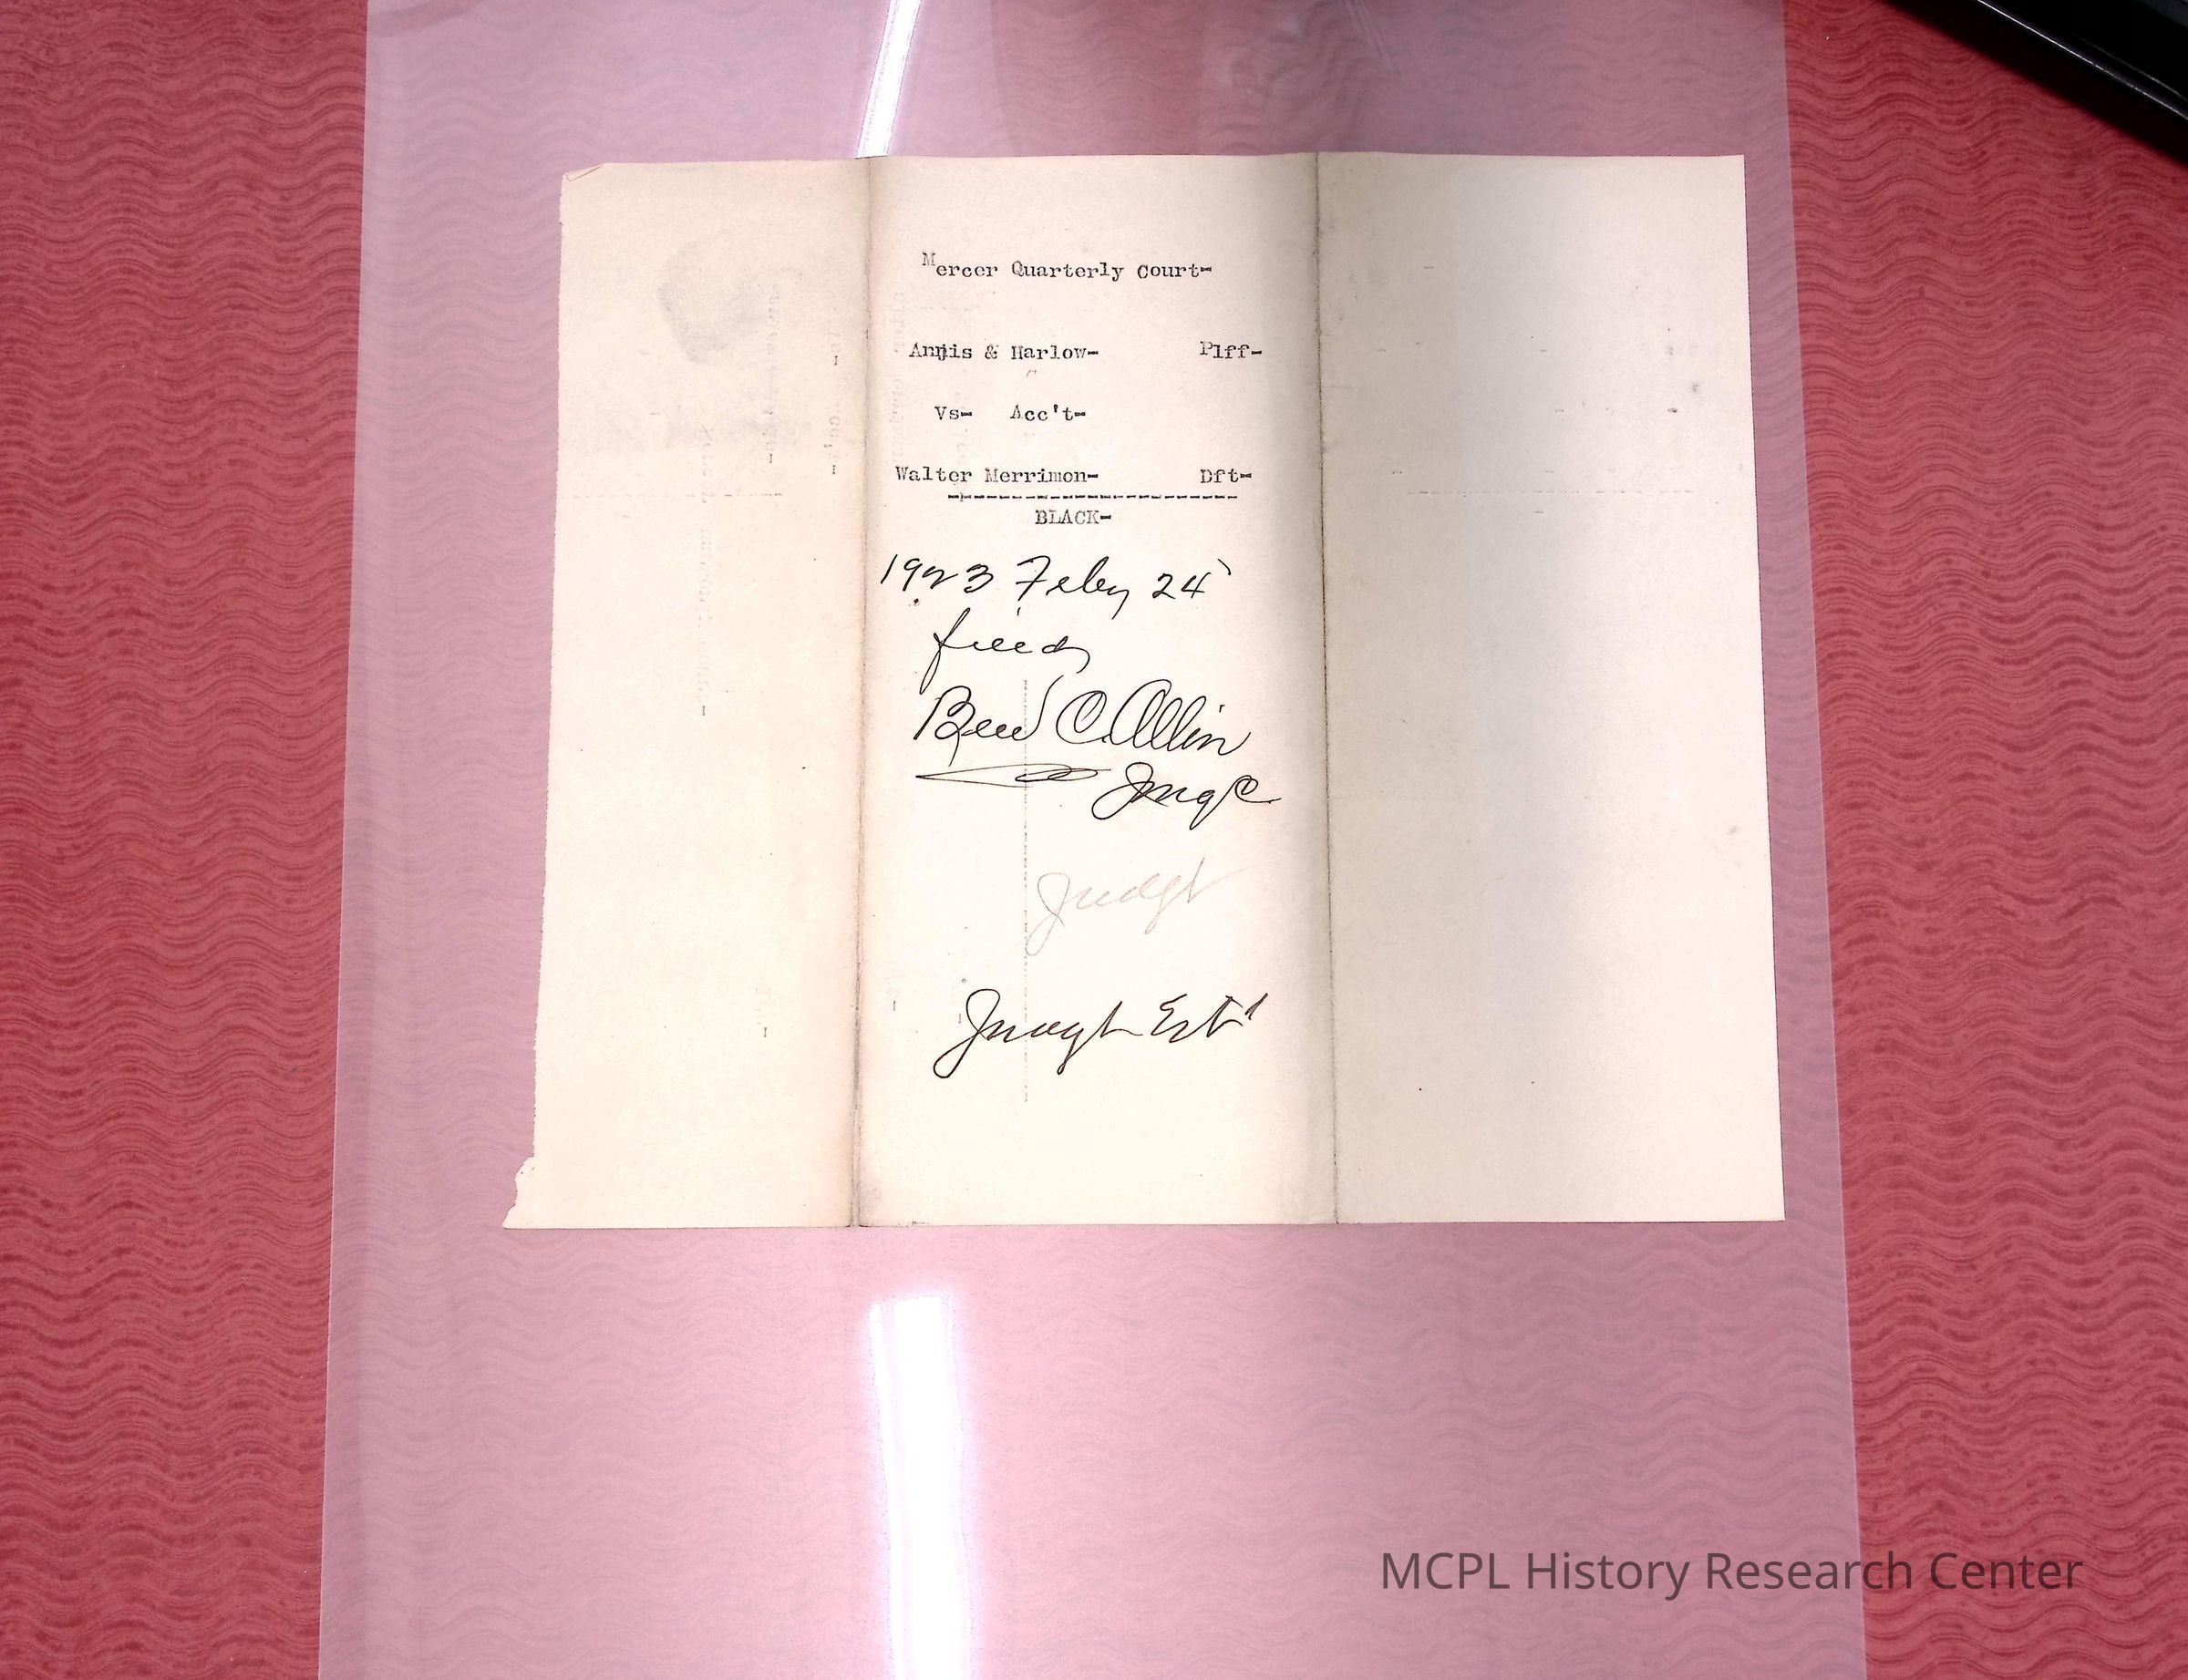 Mercer Quarterly Court-
Annis & Harlow- Plff-
Vs- Acc't-
Walter Merrimon- Dft-
BLACK-
1923 Feby 24
filed
Ben C. Allin
Judge
Judgt
Judgt Ent'd
MCPL History Research Center